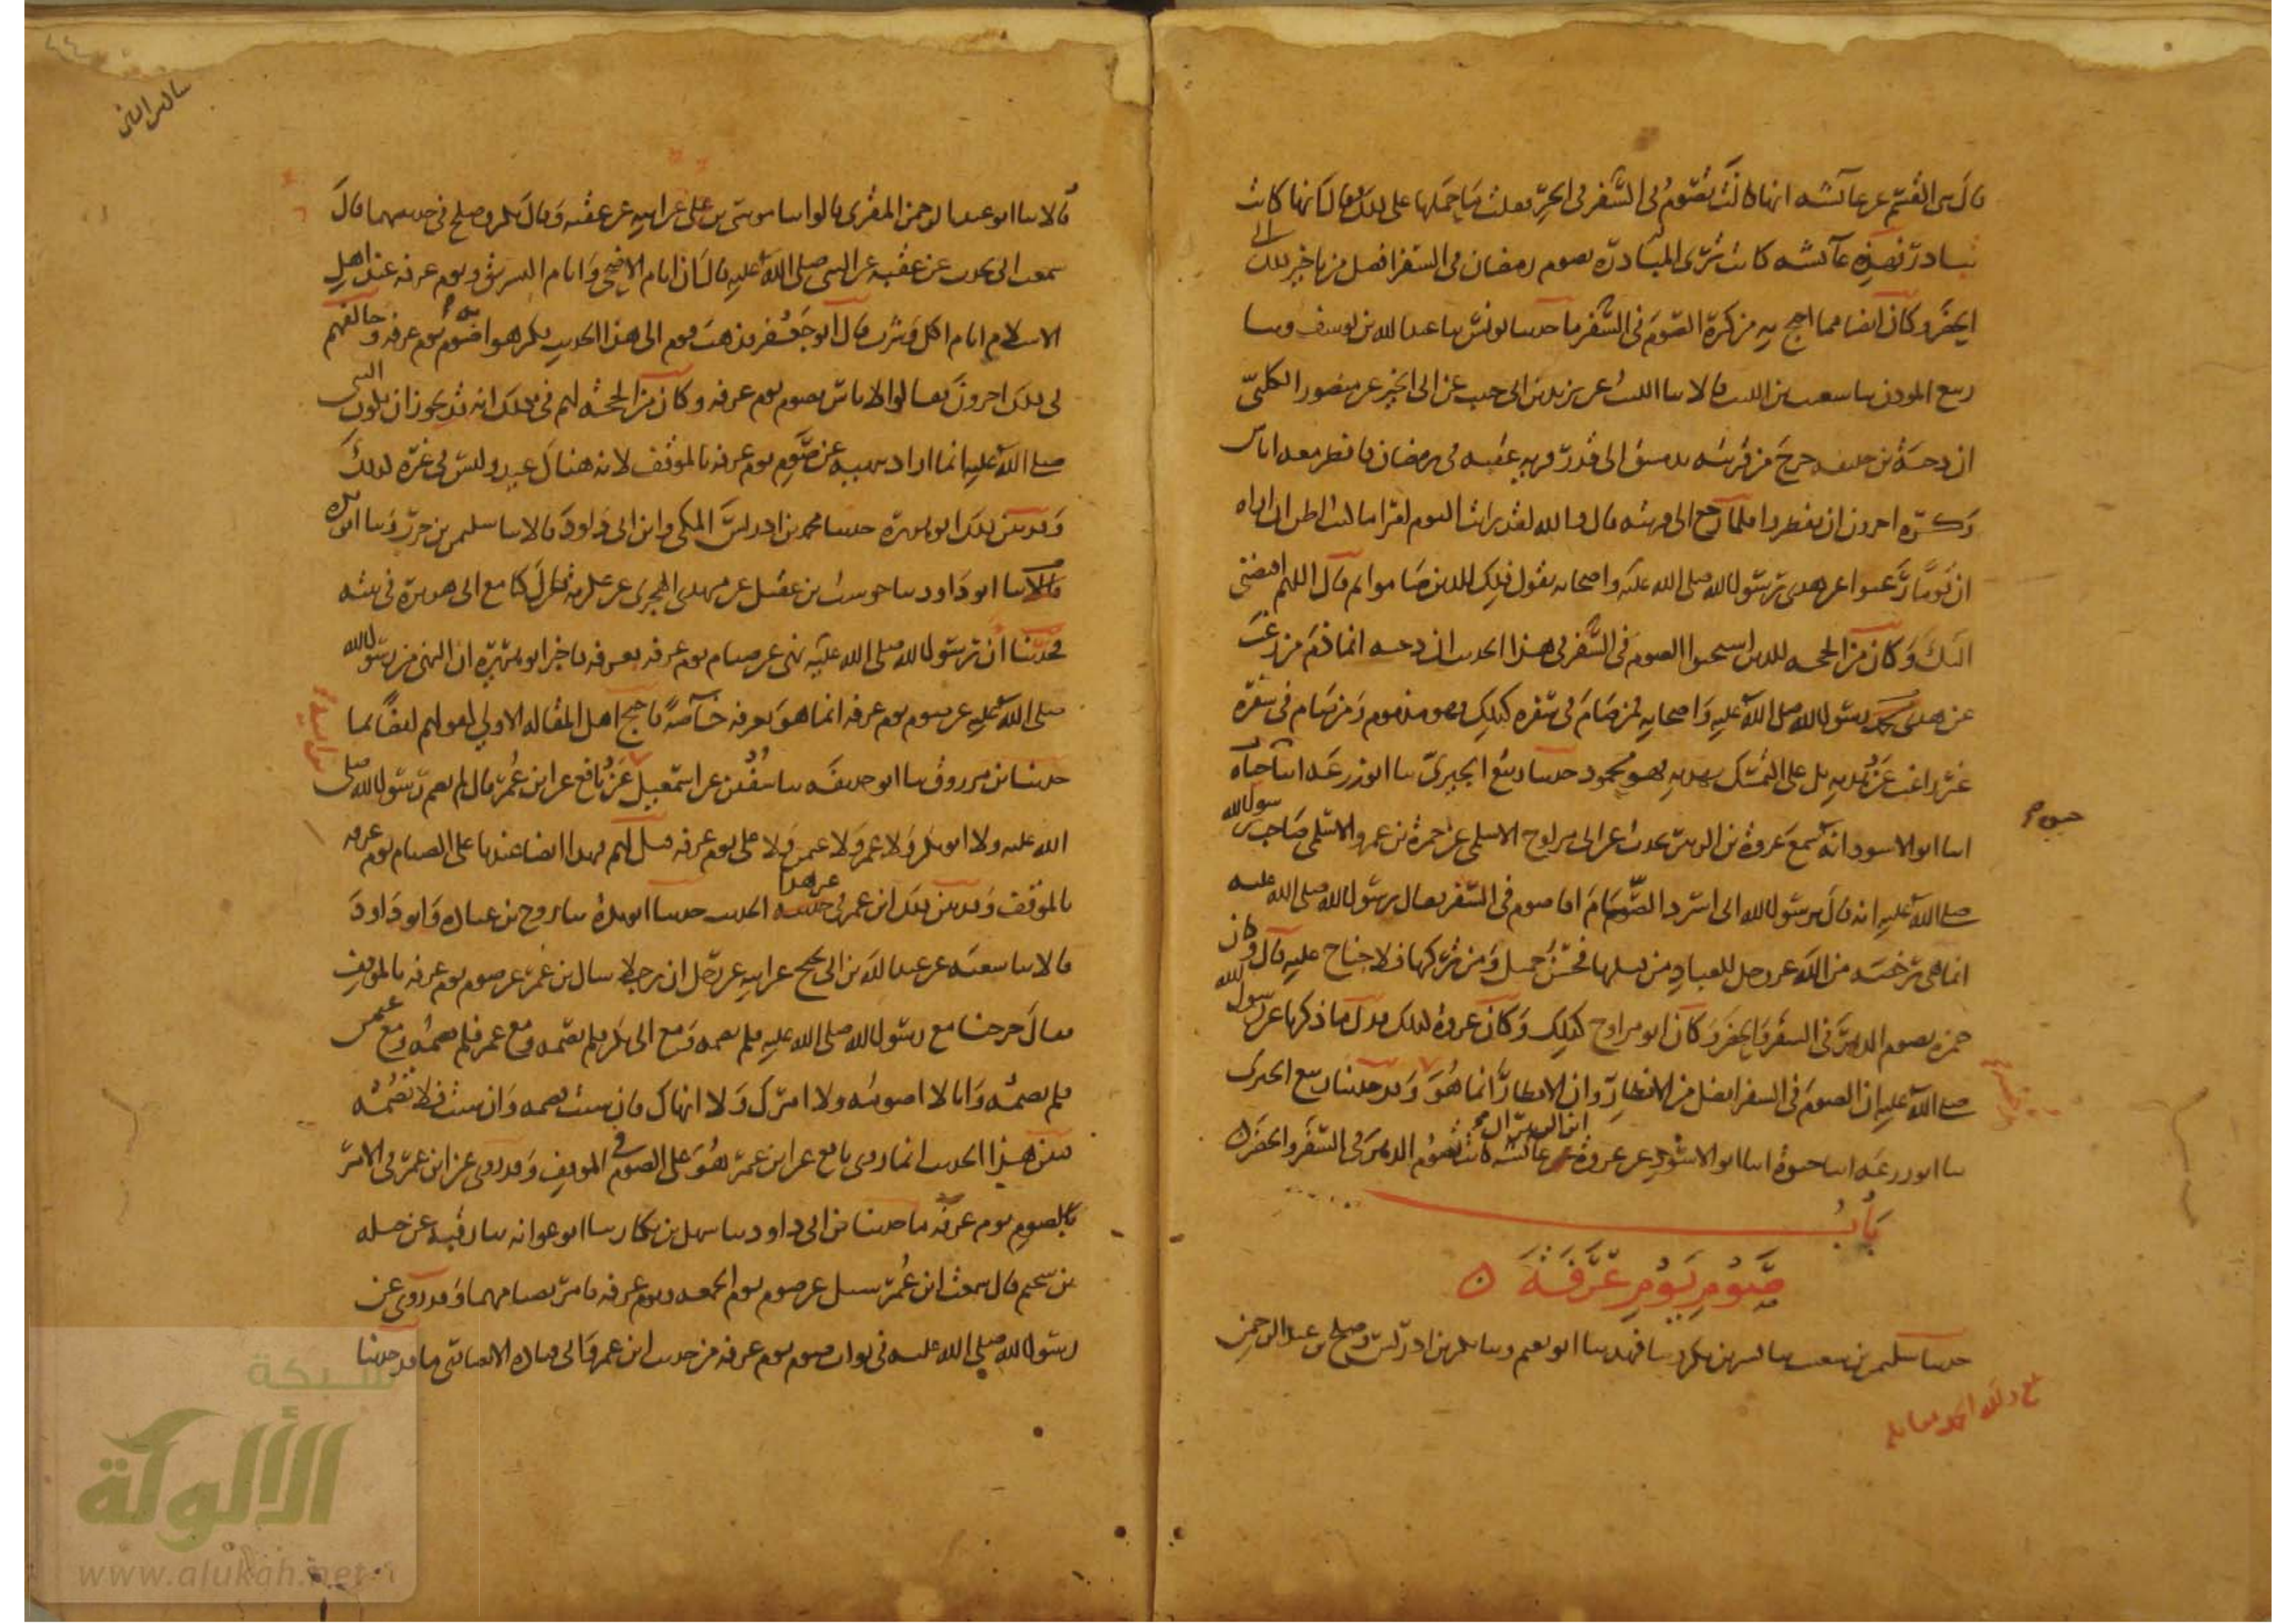 قال بن القسم عن عائشة انها كانت تصوم في السفر في الحر فقلت ما حملها على ذلك فقال انها كانت
تبادر فهذه عائشة كانت ترى المبادرة بصوم رمضان في السفر افضل من تاخير ذلك الى
الحضر وكان ايضا مما احتج به من كره الصوم في السفر ما حدثنا يونس ثنا عبد الله بن يوسف وثنا
ربيع المؤذن ثنا شعيب بن الليث قالا ثنا الليث عن يزيد بن ابي حبيب عن ابي الخير عن منصور الكلبي
ان دحية بن خليفة خرج من قريته بدمشق الى قدر قرية عقبة في رمضان فافطر معه اناس
وكره اخرون ان يفطروا فلما رجع الى قريته قال والله لقد رايت اليوم امرا ما كنت اظن ان اراه
ان قوما رغبوا عن هدى رسول الله صلى الله عليه واصحابه يقول ذلك للذين صاموا ثم قال اللهم اقبضني
اليك وكان من الحجة للذين استحبوا الصوم في السفر في هذا الحديث ان دحية انما ذم من رغب
عن هدى رسول الله صلى الله عليه واصحابه فمن صام في سفره كذلك فهو مذموم ومن صام في سفره
غير راغب عن هديه بل على التمسك بهديه فهو محمود حدثنا ربيع الجيزي ثنا ابو زرعة انا حياة
انا ابو الاسود انه سمع عروة بن الزبير يحدث عن ابي مراوح الاسلمي عن حمزة بن عمرو الاسلمي صاحب رسول الله
صلى الله عليه انه قال يرسول الله اني اسرد الصيام افاصوم في السفر فقال رسول الله صلى الله عليه
انما هي رخصة من الله عز وجل للعباد من قبلها فحسن جميل ومن تركها فلا جناح عليه قال وكان
حمزة يصوم الدهر في السفر والحضر وكان ابو مراوح كذلك وكان عروة كذلك فدل ما ذكرنا عن رسول الله
صلى الله عليه ان الصوم في السفر افضل من الافطار وان الافطار انما هو وقد حدثنا ربيع الجيزي
ثنا ابو زرعة انا حيوة انا ابو الاسود عن عروة ابن الزبير ان عائشة كانت تصوم الدهر في السفر والحضر
باب
صوم يوم عرفة
حدثنا سليمن بن شعيب ثنا بشر بن بكر وثنا فهد ثنا ابو نعيم وثنا بكر بن ادريس وصلح بن عبد الرحمن
قالا ثنا ابو عبد الرحمن المقرى قالوا ثنا موسى بن علي عن ابيه عن عقبة وقال بكر وصلح في حديثهما قال
سمعت ابي يحدث عن عقبة عن النبي صلى الله عليه قال ان ايام الاضحى وايام التشريق ويوم عرفة عند اهل
الاسلام ايام اكل وشرب قال ابو جعفر فذهب قوم الى هذا الحديث فكرهوا به صوم يوم عرفة وخالفهم
في ذلك اخرون فقالوا لا باس بصوم يوم عرفة وكان من الحجة لهم في ذلك انه قد يجوز ان يكون النبي
صلى الله عليه انما اراد بنهيه عن صوم يوم عرفة بالموقف لانه هناك عيد وليس في غيره كذلك
وقد بين ذلك ابو هريرة حدثنا محمد بن ادريس المكي وابن ابي داود قالا ثنا سليمن بن حرب وثنا ابو بكرة
قال ثنا ابو داود ثنا حوشب بن عقيل عن مهدي الهجري عن عكرمة قال كنا مع ابي هريرة في بيته
فحدثنا ان رسول الله صلى الله عليه نهى عن صيام يوم عرفة بعرفة فاخبر ابو هريرة ان النهي من رسول الله
صلى الله عليه عن صوم يوم عرفة انما هو بعرفة خاصة فاحتج اهل المقالة الاولى لقولهم ايضا بما
حدثنا بن مرزوق ثنا ابو حذيفة ثنا سفين عن اسمعيل عن نافع عن ابن عمر قال لم يصم رسول الله صلى
الله عليه ولا ابو بكر ولا عمر ولا عثمن ولا علي يوم عرفة قيل لهم فهذا ايضا عندنا على الصيام يوم عرفة
بالموقف وقد بين ذلك ابن عمر في غير هذا الحديث حدثنا ابو بكرة ثنا روح بن عبادة وابو داود
قالا ثنا شعبة عن عبد الله بن ابي نجيح عن ابيه عن رجل ان رجلا سال بن عمر عن صوم يوم عرفة بالموقف
فقال خرجنا مع رسول الله صلى الله عليه فلم يصمه ومع ابي بكر فلم يصمه ومع عمر فلم يصمه ومع عثمن
فلم يصمه وانا لا اصومه ولا امرك ولا انهاك فان شئت فصمه وان شئت فلا تصمه
فبين هذا الحديث انما روى نافع عن ابن عمر هو على الصوم في الموقف وقد روى عن ابن عمر في الامر
بالصوم يوم عرفة ما حدثنا بن ابي داود ثنا سهل بن بكار ثنا ابو عوانة ثنا رقبة عن جبلة
بن سحيم قال سمعت ابن عمر سئل عن صوم يوم الجمعة ويوم عرفة فامر بصيامهما وقد روى عن
رسول الله صلى الله عليه في ثواب صوم يوم عرفة من حديث ابن عمر وابي قتادة الانصاري ما قد حدثنا
شبكة
الألوكة
www.alukah.net